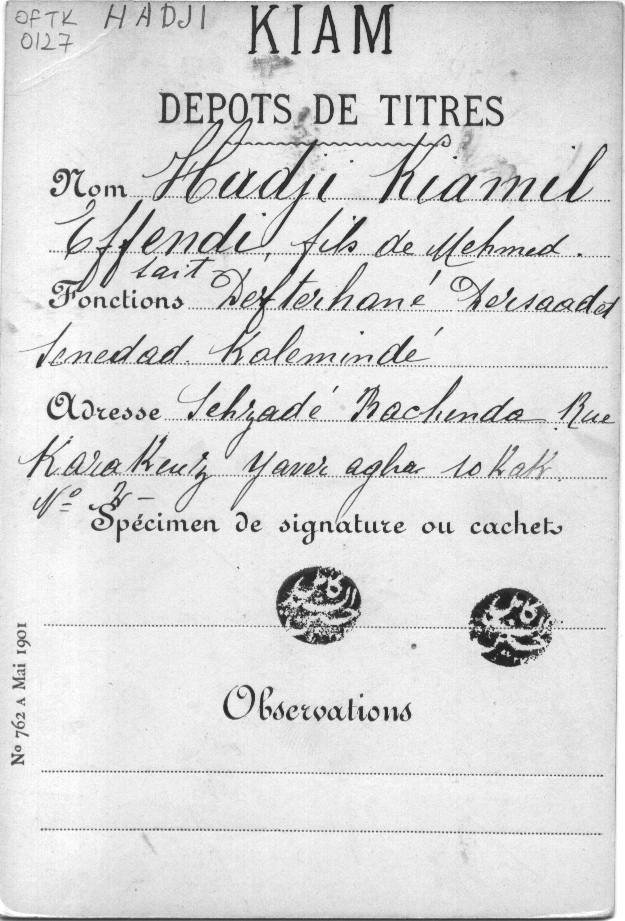 OFTK
0127
HADJI
KIAM
DEPOTS DE TITRES
Nom Hadji Kiamil
Effendi, fils de Mehmed.
sait
Fonctions Defterhané Dersaadet
Senedad. Kalemindé
Adresse Sehzadé Bachenda Rue
Karakeuz Yaver agha sokak
Nº 2-
Spécimen de signature ou cachet
Observations
Nº 762 A Mai 1901